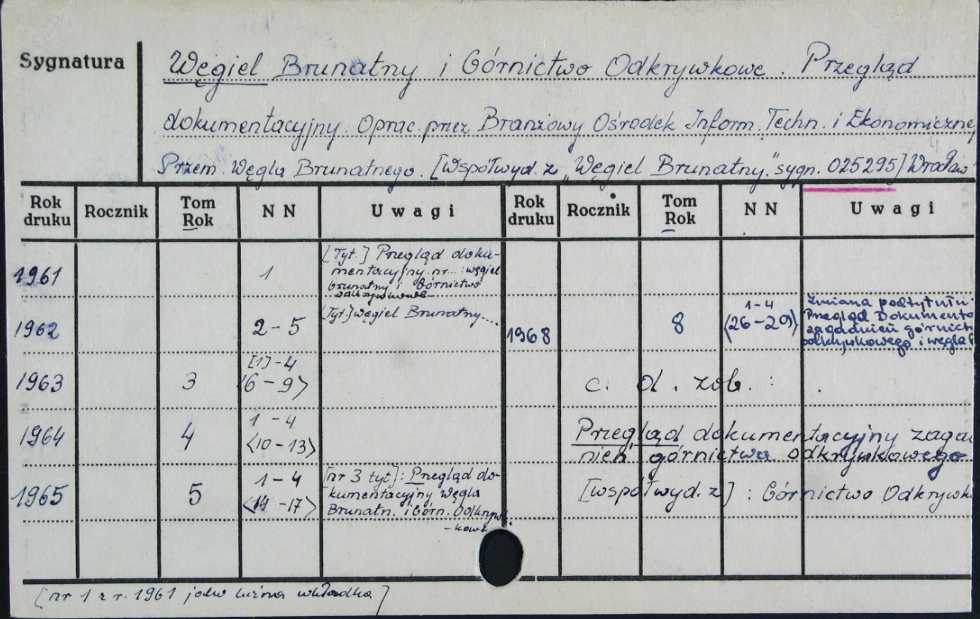 Sygnatura
Węgiel Brunatny i Górnictwo Odkrywkowe. Przegląd
dokumentacyjny. Oprac. przez Branżowy Ośrodek Inform. Techn. i Ekonomicznej
Przem. Węgla Brunatnego. [Współwyd. z „Węgiel Brunatny." sygn. 025295] Wrocław
Rok druku Rocznik Tom Rok N N Uwagi Rok druku Rocznik Tom Rok N N Uwagi
1961 1 [Tyt.] Przegląd doku-
mentacyjny nr... węgiel
brunatny i Górnictwo
odkrywkowe
1962 2-5 [Tyt.] Węgiel Brunatny....
1968 8 1-4
<26-29> Zmiana podtytułu
Przegląd Dokumenta
zagadnień górnict
odkrywkowego i węgla b
1963 3 [1]-4
<6-9>
c. d. zob. :
1964 4 1-4
<10-13>
Przegląd dokumentacyjny zaga
nień górnictwa odkrywkowego
1965 5 1-4
<14-17> [nr 3 tyt]: Przegląd do-
kumentacyjny Węgla
Brunatn. i Górn. Odkryw.
-kowe
[współwyd. z] : Górnictwo Odkrywk
[nr 1 z r. 1961 jako luźna wkładka]